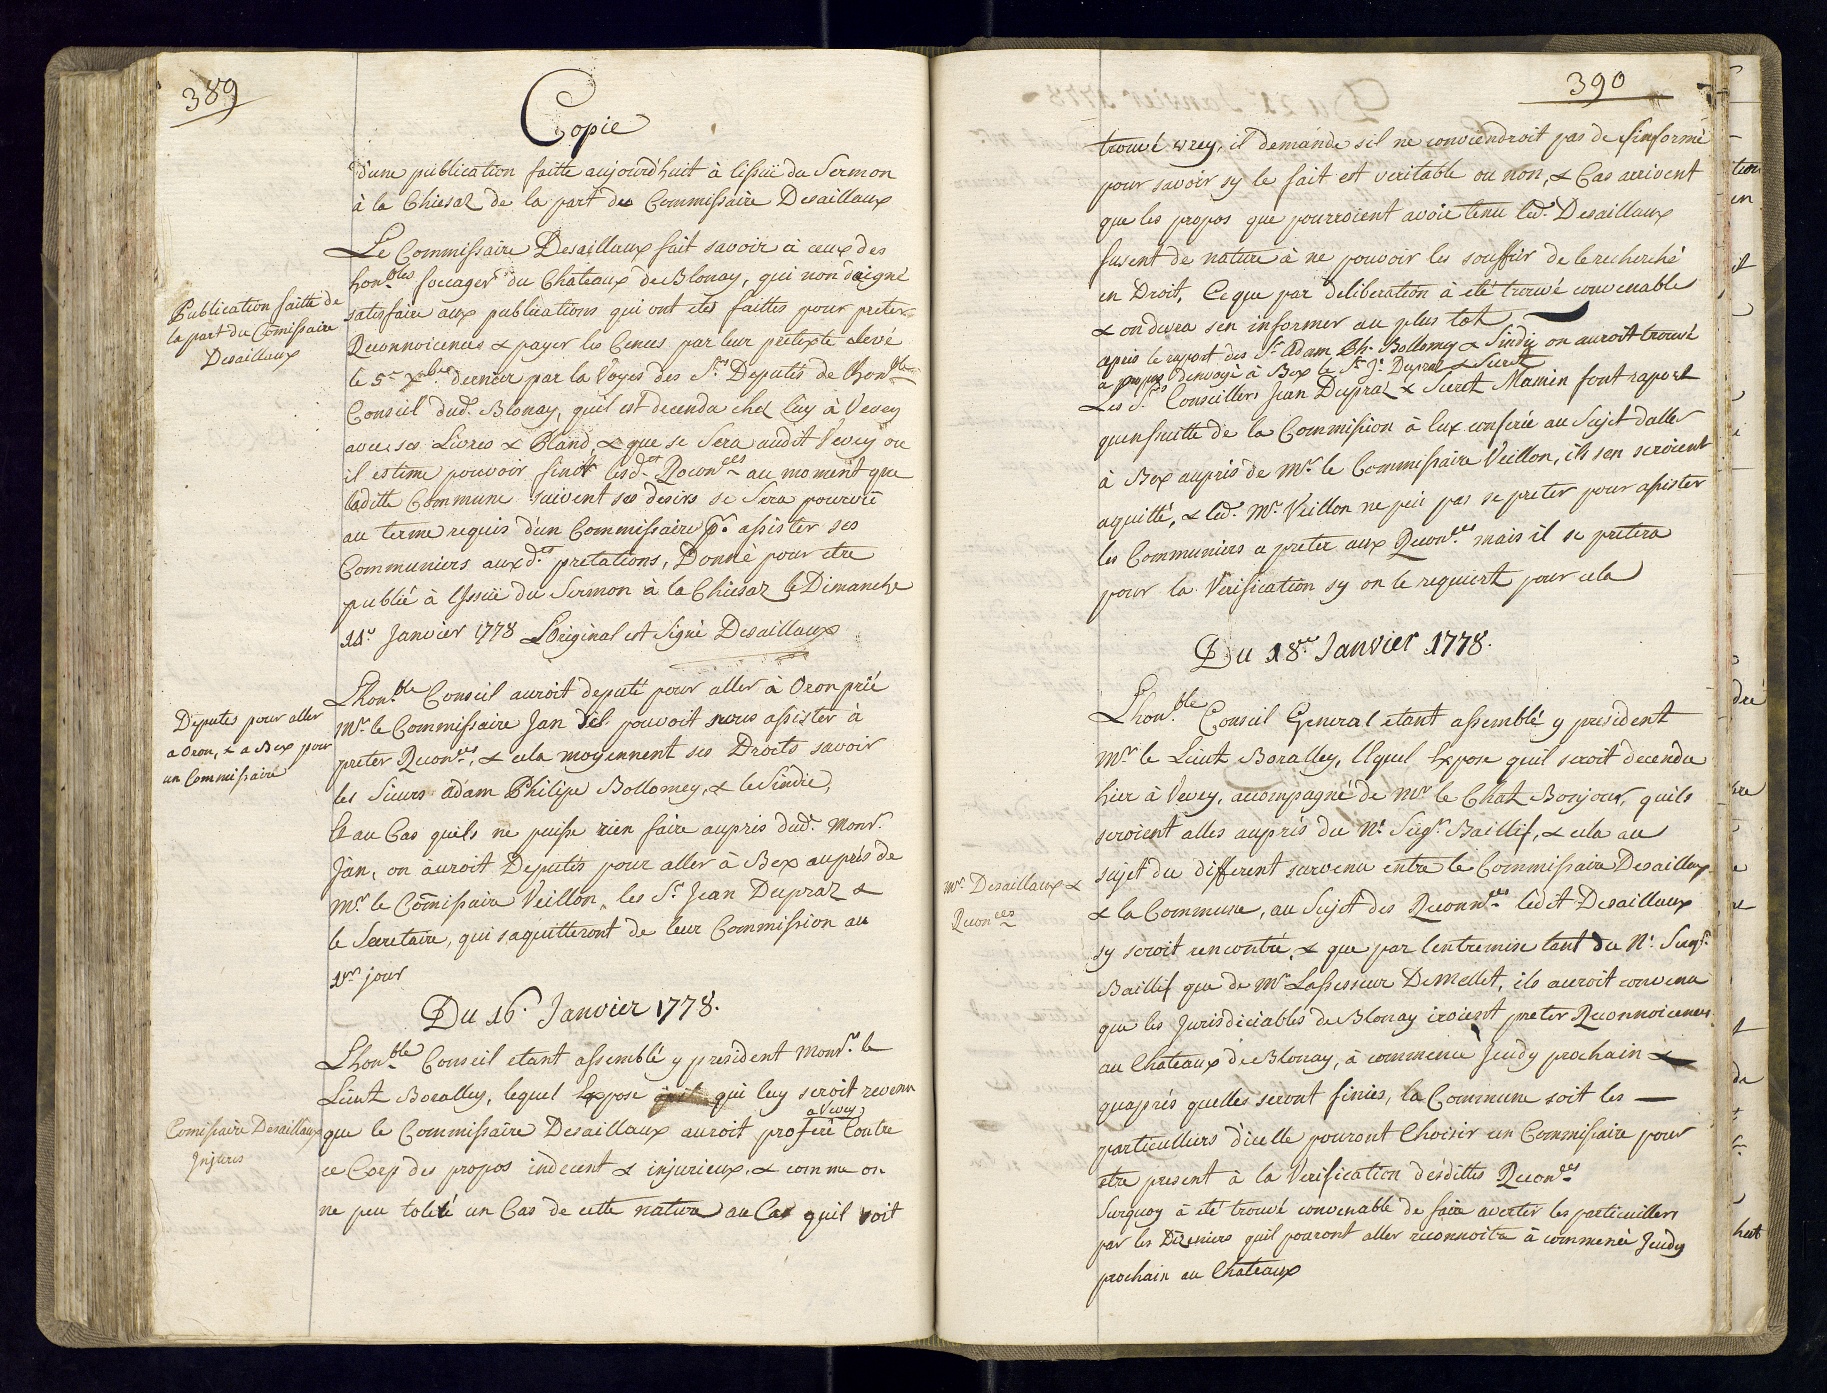 389
Copie
d'une publication faitte aujourdhuit à lissüe du Sermon
à la Chiesaz de la part du Commissaire Desaillaux
Le Commissaire Desaillaux fait savoir à ceux des
honbles focagers du Chateaux de Blonay, qui non daigné
Publication faitte de
la part du Comissaire
Desaillaux
satisfaire aux publications qui ont etés faittes pour preter
Reconnoicences & payer les Cences par leur pretexte elevé
le 5e Xbre dernier par la Voyes des Srs Deputés de lhonble
Conseil dud. Blonay, quil est decendu chez luy à Vevey
avec ses Livres & Pland, & que se Sera audit Vevey ou
il estime pouvoir finir lesdtes Reconces au moment que
laditte Commune suivent ses desirs se Sera pourvüe
au terme requis d'un Commissaire pr. assister ses
Communiers auxd. pretations, Donné pour etre
publié à lissüe du Sermon à la Chiesaz le Dimanche
11e Janvier 1778 Loriginal est Signé Desaillaux
Deputés pour aller
a Oron, & a Bex pour
un Commissaire
Lhonble Conseil auroit deputé pour aller à Oron prié
Mr. le Commissaire Jan sil pouvoit nous assister à
preter Reconces, & cela moyennent ses Droits savoir
les Sieurs Adam Philipe Bollomey, & le Sindic,
Et au Cas quils ne puisse rien faire aupres dud. Monr.
Jan, on auroit Deputés pour aller à Bex auprés de
Mr. le Comissaire Veillon, les Sr. Jean Dupraz &
le Secretaire, qui saquitteront de leur Commission au
1er jour
Du 16e. Janvier 1778.
Lhonble Conseil etant assemblé y president Monsr. le
Lieut Boralley, lequel Expose qui luy seroit revenu
Comissaire Desaillaux
Injures
a Vevey
que le Commissaire Desaillaux auroit proferé Contre
ce Corp des propos indecent & injurieux, & comme on
ne peu toleré un Cas de cette nature au Cas quil soit
390
trouvé vrey, il demande sil ne conviendroit pas de sinformé
pour savoir sy le fait est veritable ou non, & Cas arrivent
que les propos que pourroient avoir tenu led. Desaillaux
fusent de nature à ne pouvoir les souffrir de le recherché
en Droit, Ce que par deliberation à eté trouvé convenable
& on devra sen informer au plus tot
apres le raport des Sr. Adam Ph. Bollomey & Sindic on auroit trouvé
à propos denvoyé à Bex le Sr. Jn. Dupraz & Secret
Les Srs. Conseillers Jean Dupraz & Secret Mamin font raport
quensuitte de la Commission à Eux conferée au Sujet daller
à Bex aupres de Mr. le Commissaire Veillon, ils sen seroient
aquitté, & led. Mr. Veillon ne peu pas se preter pour assister
les Communiers a preter aux Reconces. mais il se pretera
pour la Verification sy on le requiert pour cela
Du 18e. Janvier 1778.
Lhonble. Conseil General etant assemblé y president
Mr. le Lieut Boralley, lequel Expose quil seroit decendu
hier à Vevey, accompagné de Mr. le Chat. Bonjour, quils
seroient alles auprés du N. Seigr. Baillif, & cela au
sujet du different survenu entre le Commissaire Desaillaux
Mr. Desaillaux &
Reconces
& la Commune, au Sujet des Reconnces ledit Desaillaux
sy seroit rencontré, & que par lentremise tant du N. Seigr.
Baillif que de Mr. Lassesseur De Mellet, ils auroit convenu
que les Jurisdiciables de Blonay iroient preter Reconnoicences
au Chateaux de Blonay, à commencé Jeudy prochain &
quaprés quelles seront finies, la Commune soit les
particulliers d'icelle pouront Choisir un Commissaire pour
etre present à la Verification desdittes Reconces
Surquoy à eté trouvé convenable de faire avertir les particuillers
par les Dizeniers quil pouront aller reconnoitre à commencé Jeudy
prochain au Chateaux